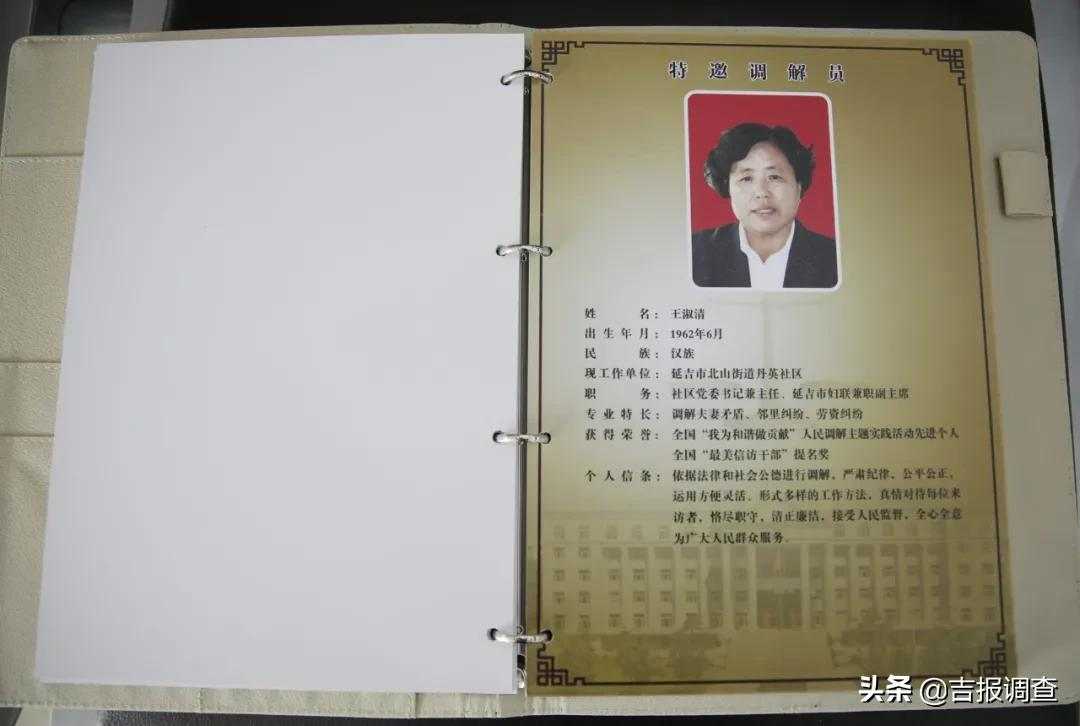 特邀调解员
姓名：王淑清
出生年月：1962年6月
民族：汉族
现工作单位：延吉市北山街道丹英社区
职务：社区党委书记兼主任、延吉市妇联兼职副主席
专业特长：调解夫妻矛盾、邻里纠纷、劳资纠纷
获得荣誉：全国“我为和谐做贡献”人民调解主题实践活动先进个人
全国“最美信访干部”提名奖
个人信条：依据法律和社会公德进行调解，严肃纪律，公平公正，
运用方便灵活、形式多样的工作方法，真情对待每位来
访者，恪尽职守，清正廉洁，接受人民监督，全心全意
为广大人民群众服务。
头条 @吉报调查